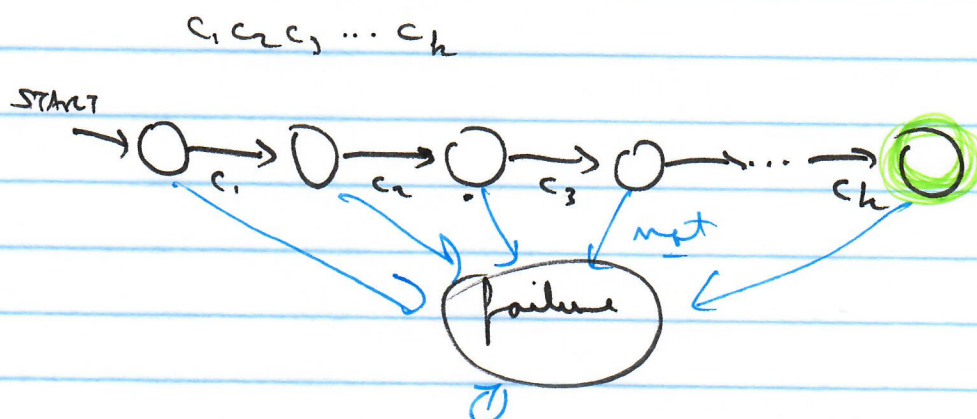 c₁ c₂ c₃ ... cₖ
START
c₁ c₂ c₃ ... cₖ
not
failure